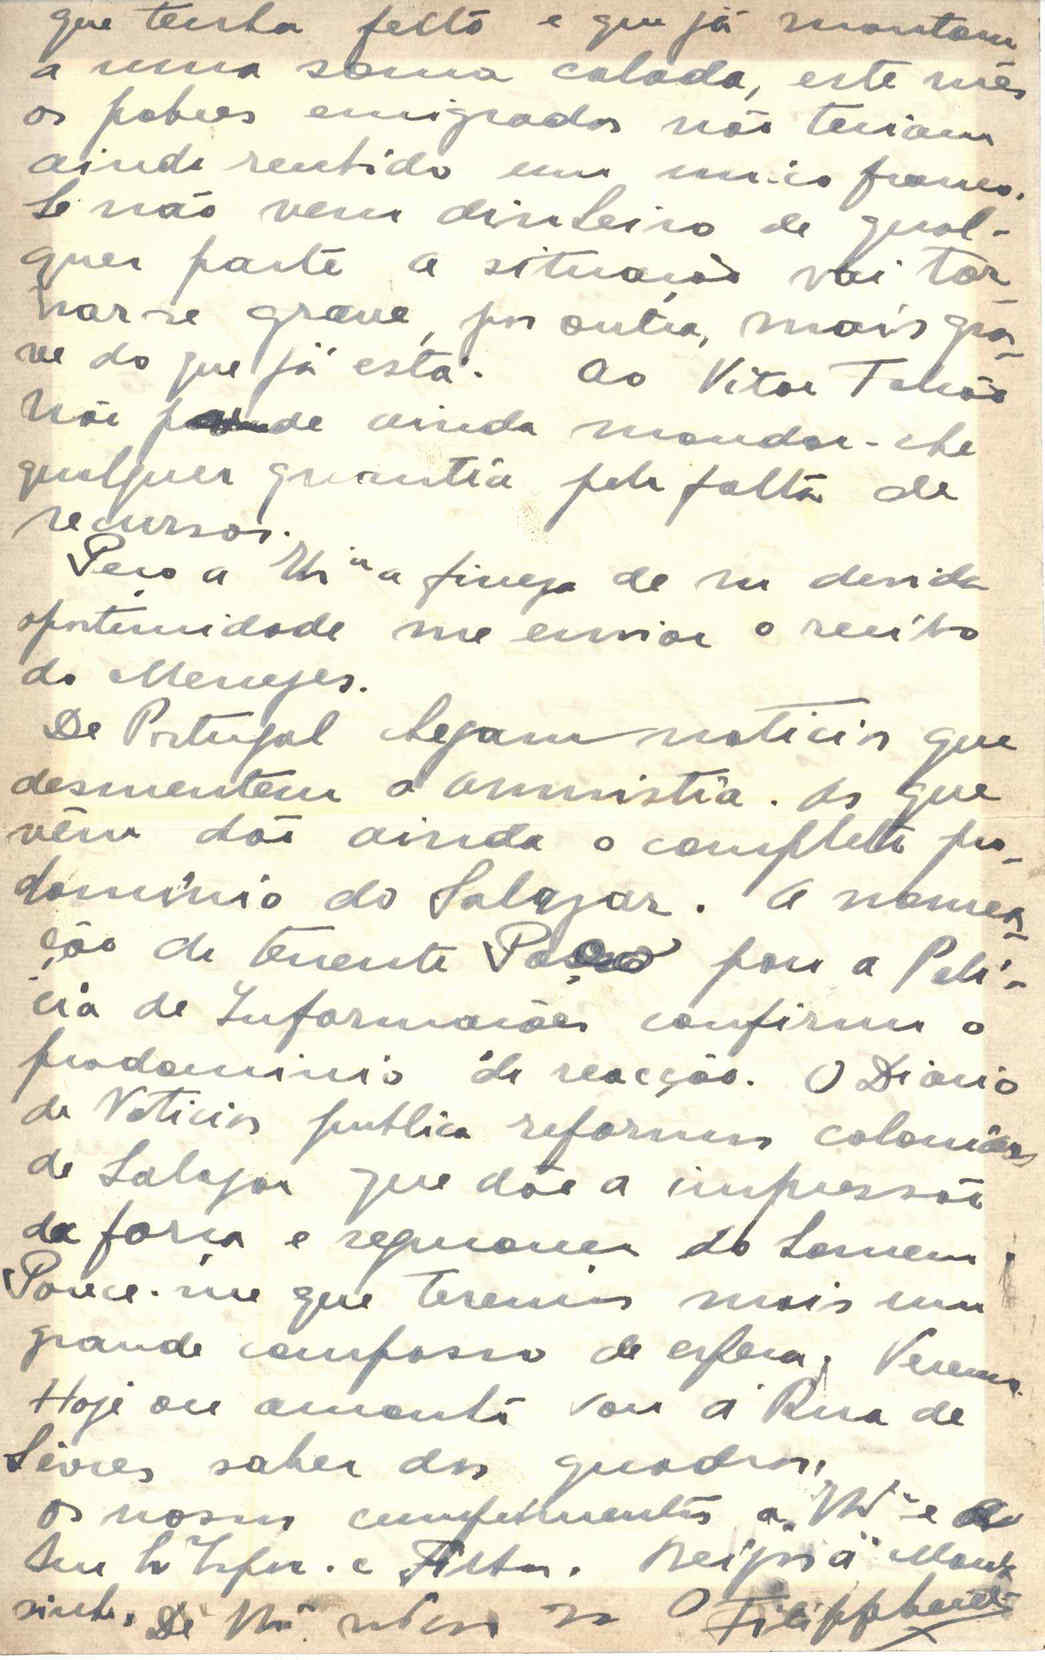 que tenha feito e que já montam
a uma soma calada, este mês
os pobres emigrados não teriam
ainda sentido um unico franco.
Se não vem dinheiro de qual-
quer parte a situação vai tor-
nar-se grave, por outra, mais gra-
ve do que já está. Ao Vitor
não pude ainda mandar-lhe
qualquer quantia pela falta de
recursos.
Peço a fineza de na devida
oportunidade me enviar o recibo
do Menezes.
De Portugal chegam noticias que
desmentem a amnistia. As que
vêm dão ainda o completo pre-
dominio do Salazar. A nomea-
ção do tenente Passo para a Poli-
cia de Informações confirma o
predominio da reacção. O Diario
de Noticias publica reformas coloniais
de Salazar que dão a impressão
da força e segurança do homem.
Parece-me que teremos mais um
grande compasso de espera. Veremos.
Hoje ou amanhã vou á Rua de
Sèvres saber dos quadros.
Os nossos cumprimentos a e ao
seu Espo. e Filhos. Beijos á
De